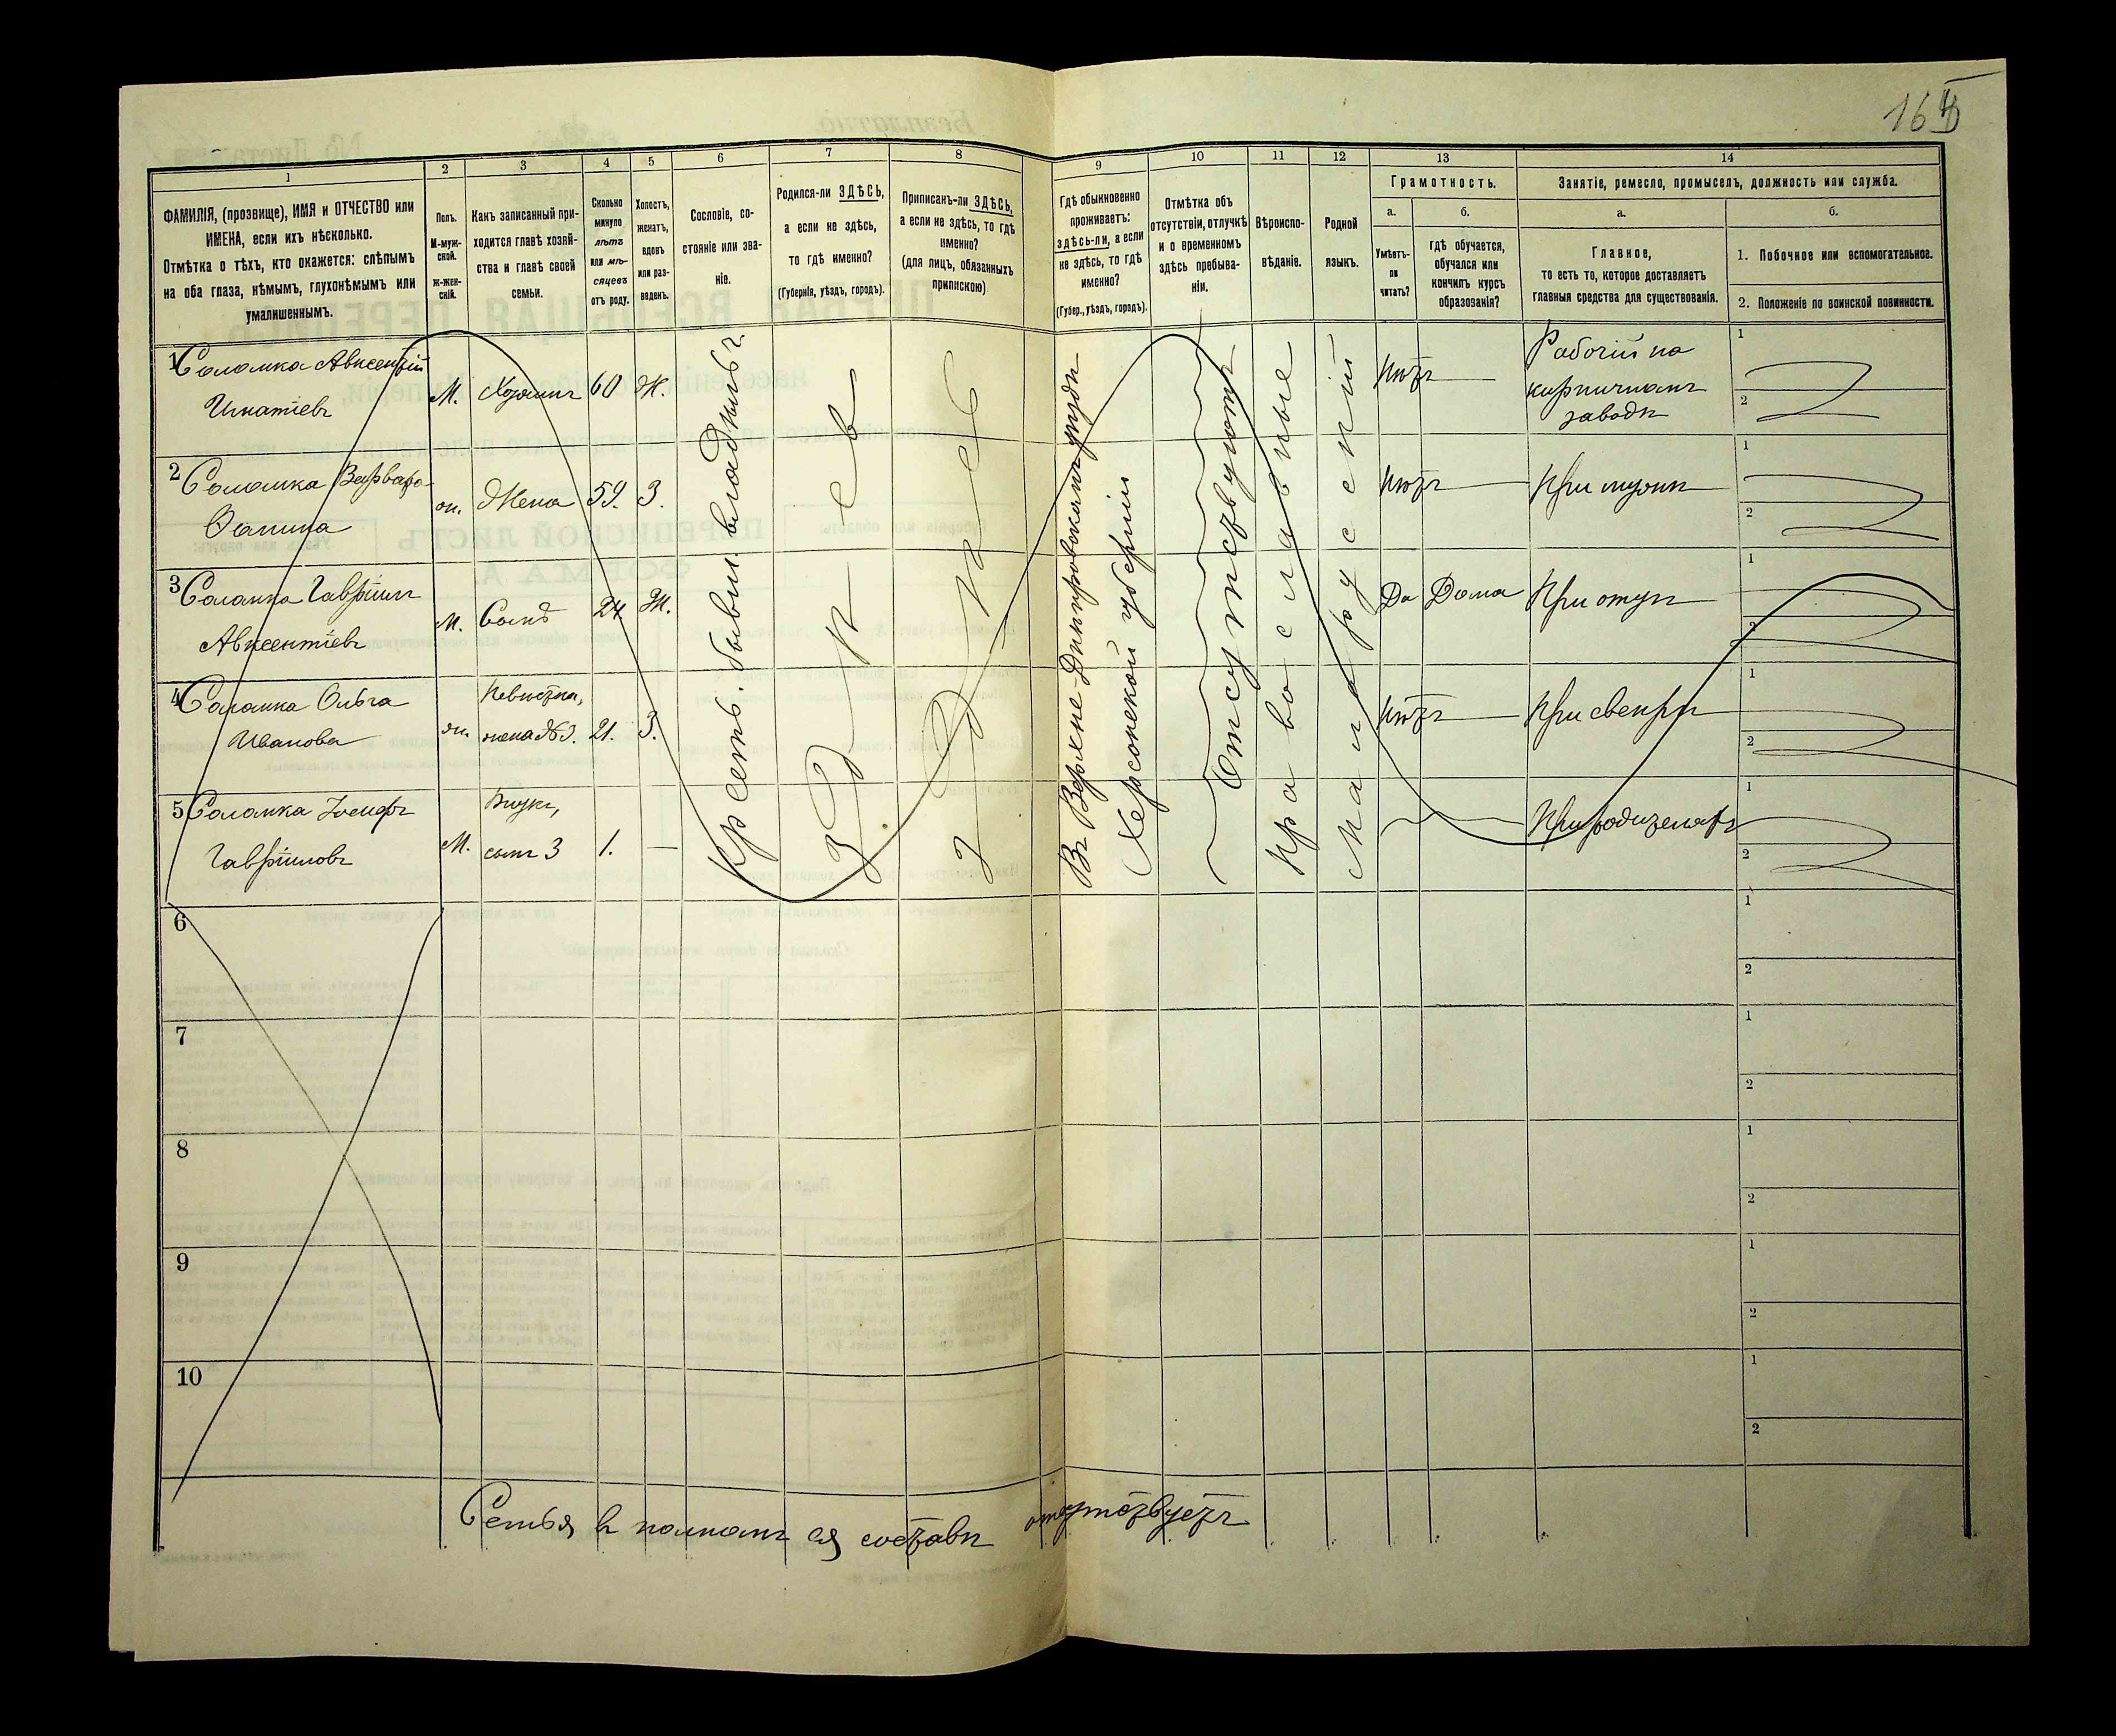 164
1
2
3
4
5
6
7
8
9
10
11
12
13
14
ФАМИЛІЯ, (прозвище), ИМЯ и ОТЧЕСТВО или
ИМЕНА, если ихъ нѣсколько.
Отмѣтка о тѣхъ, кто окажется: слѣпымъ
на оба глаза, нѣмымъ, глухонѣмымъ или
умалишеннымъ.
Полъ.
М-муж-
ской.
Ж-жен-
скій.
Какъ записанный при-
ходится главѣ хозяй-
ства и главѣ своей
семьи.
Сколько
минуло
лѣтъ
или мѣ-
сяцевъ
отъ роду.
Холостъ,
женатъ,
вдовъ
или раз-
веденъ.
Сословіе, со-
стояніе или зва-
ніе.
Родился-ли ЗДѢСЬ,
а если не здѣсь,
то гдѣ именно?
(Губернія, уѣздъ, городъ).
Приписанъ-ли ЗДѢСЬ,
а если не здѣсь, то гдѣ
именно?
(для лицъ, обязанныхъ
припискою)
Гдѣ обыкновенно
проживаетъ:
здѣсь-ли, а если
не здѣсь, то гдѣ
именно?
(Губер., уѣздъ, городъ).
Отмѣтка объ
отсутствіи, отлучкѣ
и о временномъ
здѣсь пребыва-
ніи.
Вѣроиспо-
вѣданіе.
Родной
языкъ.
Грамотность.
а.
б.
Умѣетъ-
ли
читать?
гдѣ обучается,
обучался или
кончилъ курсъ
образованія?
Занятіе, ремесло, промыселъ, должность или служба.
а.
б.
Главное,
то есть то, которое доставляетъ
главныя средства для существованія.
1. Побочное или вспомогательное.
2. Положеніе по воинской повинности.
1 Соломка Авксентій
Игнатіевъ
М.
Хозяинъ
60
Ж.
Нѣтъ
Рабочій на
кирпичномъ
заводѣ
1
2
2 Соломка Варвара
Жена
59.
З.
Нѣтъ
При мужѣ
1
2
3 Соломка Гавріилъ
Авксентіевъ
М.
Сынъ
Ж.
Да
Дома
При отцѣ
1
2
4 Соломка Ольга
Иванова
Невѣстка,
жена
21.
З.
Нѣтъ
При свекрѣ
1
2
5 Соломка Іосифъ
Гавріиловъ
М.
Внукъ,
сынъ 3
1.
При родителяхъ
1
2
Крестъ. бывш. владѣльч.
Здѣсь
Здѣсь
Въ Верхне-Днѣпровскомъ уѣздѣ
Херсонской губерніи
Отсутствуютъ
Православные
Малорусскій
6
1
2
7
1
2
8
1
2
9
1
2
10
1
2
Семья в полномъ ея составѣ отсутствуетъ